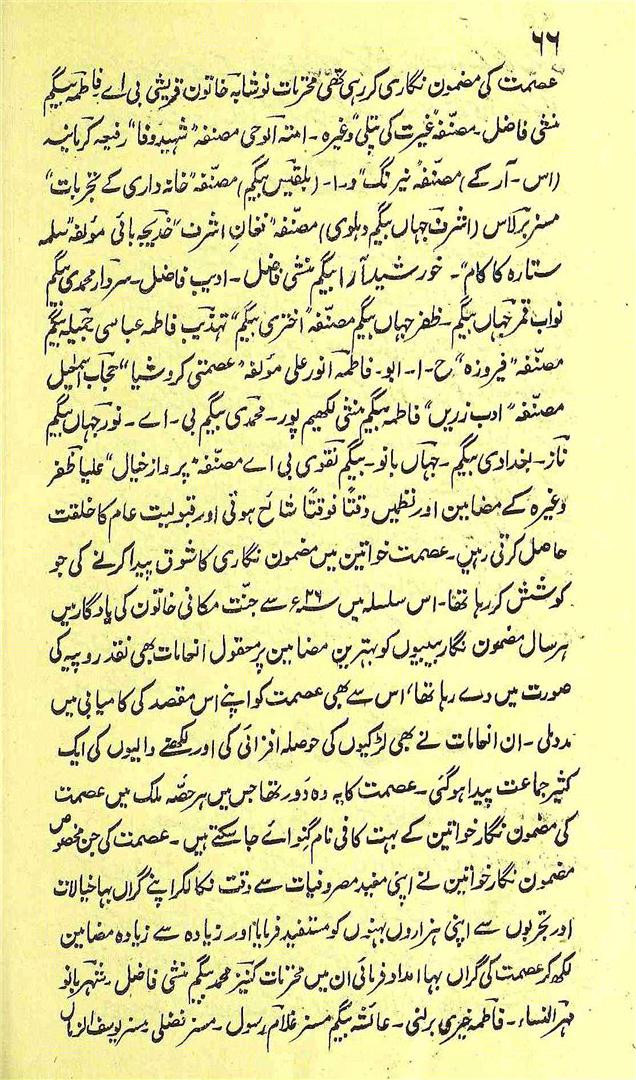 ۶۶
عصمت کی مضمون نگاری کر رہی تھیں محترمات نوشابہ خاتون قریشی بی اے فاطمہ بیگم
منشی فاضل۔ مصنفہ "غیرت کی پتلی" وغیرہ۔ امتہ الوحی مصنفہ "شہید وفا" رفیعہ
(اس۔ آر کے) مصنفہ "نیرنگ" و۔ ا۔ (بلقیس بیگم) مصنفہ "خانہ داری کے تجربات"
مسز برلاس (اشرف جہاں بیگم دہلوی) مصنفہ "نغان اشرف" خدیجہ بائی مؤلفہ "سلمہ
ستارہ کا کام"۔ خورشید آرا بیگم منشی فاضل۔ ادیب فاضل۔ سردار محمدی بیگم
نواب قمر جہاں بیگم۔ ظفر جہاں بیگم مصنفہ "اختری بیگم" تہذیب فاطمہ عباسی جمیلہ بیگم
مصنفہ "فیروزہ" ح۔ ا۔ ابو۔ فاطمہ انور علی مؤلفہ "عصمتی کروشیا" حجاب اسمٰعیل
مصنفہ "ادب زریں" فاطمہ بیگم منشی لکھیم پور۔ محمدی بیگم بی۔ اے۔ نور جہاں بیگم
ناز۔ بغدادی بیگم۔ جہاں بانو۔ بیگم نقوی بی اے مصنفہ "پرواز خیال" علیا ظفر
وغیرہ کے مضامین اور نظمیں وقتاً فوقتاً شائع ہوتی اور قبولیت عام کا خلعت
حاصل کرتی رہیں۔ عصمت خواتین میں مضمون نگاری کا شوق پیدا کرنے کی جو
کوشش کر رہا تھا۔ اس سلسلہ میں ۲۶ء سے جنت مکانی خاتون کی یادگار میں
ہر سال مضمون نگار بیبیوں کو بہترین مضامین پر معقول انعامات بھی نقد روپیہ کی
صورت میں دے رہا تھا، اس سے بھی عصمت کو اپنے اس مقصد کی کامیابی میں
مدد ملی۔ ان انعامات نے بھی لڑکیوں کی حوصلہ افزائی کی اور لکھنے والیوں کی ایک
کثیر جماعت پیدا ہو گئی۔ عصمت کا یہ وہ دَور تھا جس میں ہر حصّہ ملک میں عصمت
کی مضمون نگار خواتین کے بہت کافی نام گنوائے جا سکتے ہیں۔ عصمت کی جن مخصوص
مضمون نگار خواتین نے اپنی مفید مصروفیات سے وقت نکالکر اپنے گراں بہا خیالات
اور تجربوں سے اپنی ہزاروں بہنوں کو مستفید فرمایا اور زیادہ سے زیادہ مضامین
لکھ کر عصمت کی گراں بہا امداد فرمائی ان میں محترمات کنیز محمد بیگم منشی فاضل۔ شہر بانو
مہر النساء۔ فاطمہ خیری برنی۔ عائشہ بیگم مسز غلام رسول۔ مسز فضلی۔ مسز یوسف الزماں